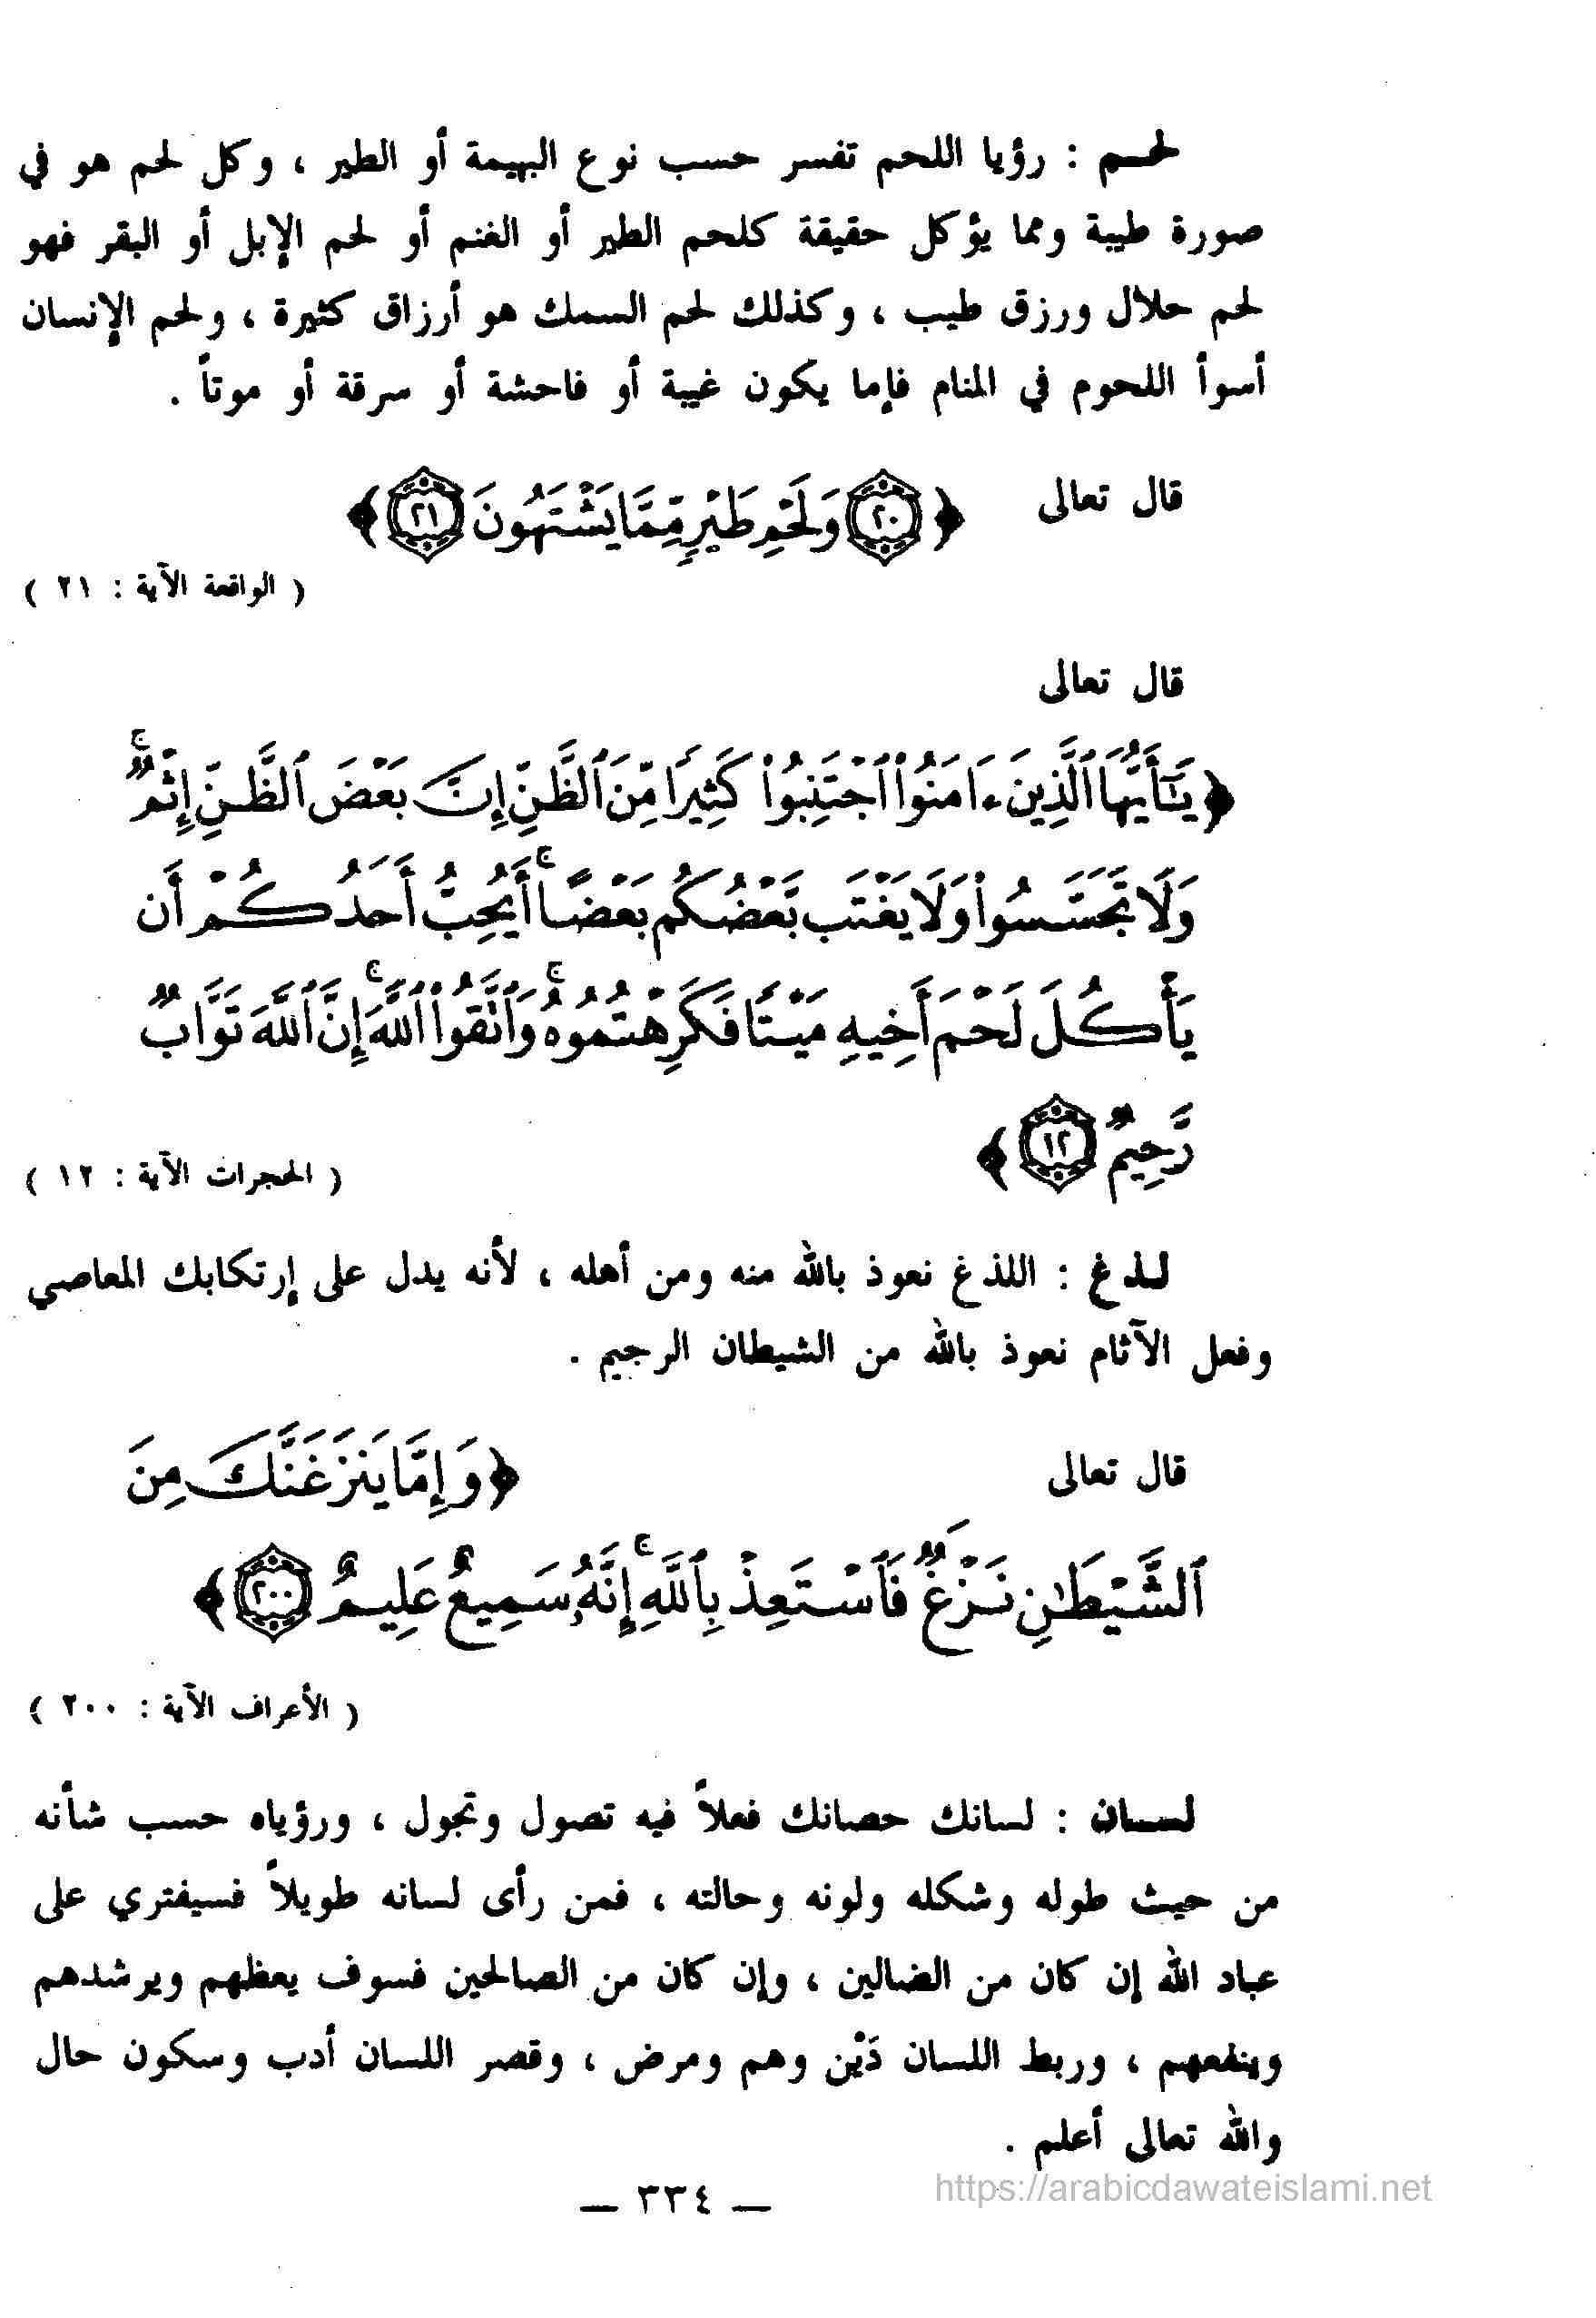 لحـم : رؤيا اللحم تفسر حسب نوع البهيمة أو الطير ، وكل لحم هو في
صورة طيبة ومما يؤكل حقيقة كلحم الطير أو الغنم أو لحم الإبل أو البقر فهو
لحم حلال ورزق طيب ، وكذلك لحم السمك هو أرزاق كثيرة ، ولحم الإنسان
أسوأ اللحوم في المنام فإما يكون غيبة أو فاحشة أو سرقة أو موتاً .
قال تعالى ﴿ ٢٠ وَلَحْمِ طَيْرٍ مِّمَّا يَشْتَهُونَ ٢١ ﴾
( الواقعة الآية : ٢١ )
قال تعالى
﴿ يَٰٓأَيُّهَا ٱلَّذِينَ ءَامَنُوا۟ ٱجْتَنِبُوا۟ كَثِيرًا مِّنَ ٱلظَّنِّ إِنَّ بَعْضَ ٱلظَّنِّ إِثْمٌ ۖ
وَلَا تَجَسَّسُوا۟ وَلَا يَغْتَب بَّعْضُكُم بَعْضًا ۚ أَيُحِبُّ أَحَدُكُمْ أَن
يَأْكُلَ لَحْمَ أَخِيهِ مَيْتًا فَكَرِهْتُمُوهُ ۚ وَٱتَّقُوا۟ ٱللَّهَ ۚ إِنَّ ٱللَّهَ تَوَّابٌ
رَّحِيمٌ ١٢ ﴾
( الحجرات الآية : ١٢ )
لـدغ : اللذغ نعوذ بالله منه ومن أهله ، لأنه يدل على إرتكابك المعاصي
وفعل الآثام نعوذ بالله من الشيطان الرجيم .
قال تعالى ﴿ وَإِمَّا يَنزَغَنَّكَ مِنَ
ٱلشَّيْطَٰنِ نَزْغٌ فَٱسْتَعِذْ بِٱللَّهِ ۚ إِنَّهُۥ سَمِيعٌ عَلِيمٌ ٢٠٠ ﴾
( الأعراف الآية : ٢٠٠ )
لسـان : لسانك حصانك فعلاً فيه تصول وتجول ، ورؤياه حسب شأنه
من حيث طوله وشكله ولونه وحالته ، فمن رأى لسانه طويلاً فسيفتري على
عباد الله إن كان من الضالين ، وإن كان من الصالحين فسوف يعظهم ويرشدهم
وينفعهم ، وربط اللسان دَيْن وهم ومرض ، وقصر اللسان أدب وسكون حال
والله تعالى أعلم .
— ٣٣٤ —
https://arabicdawateislami.net